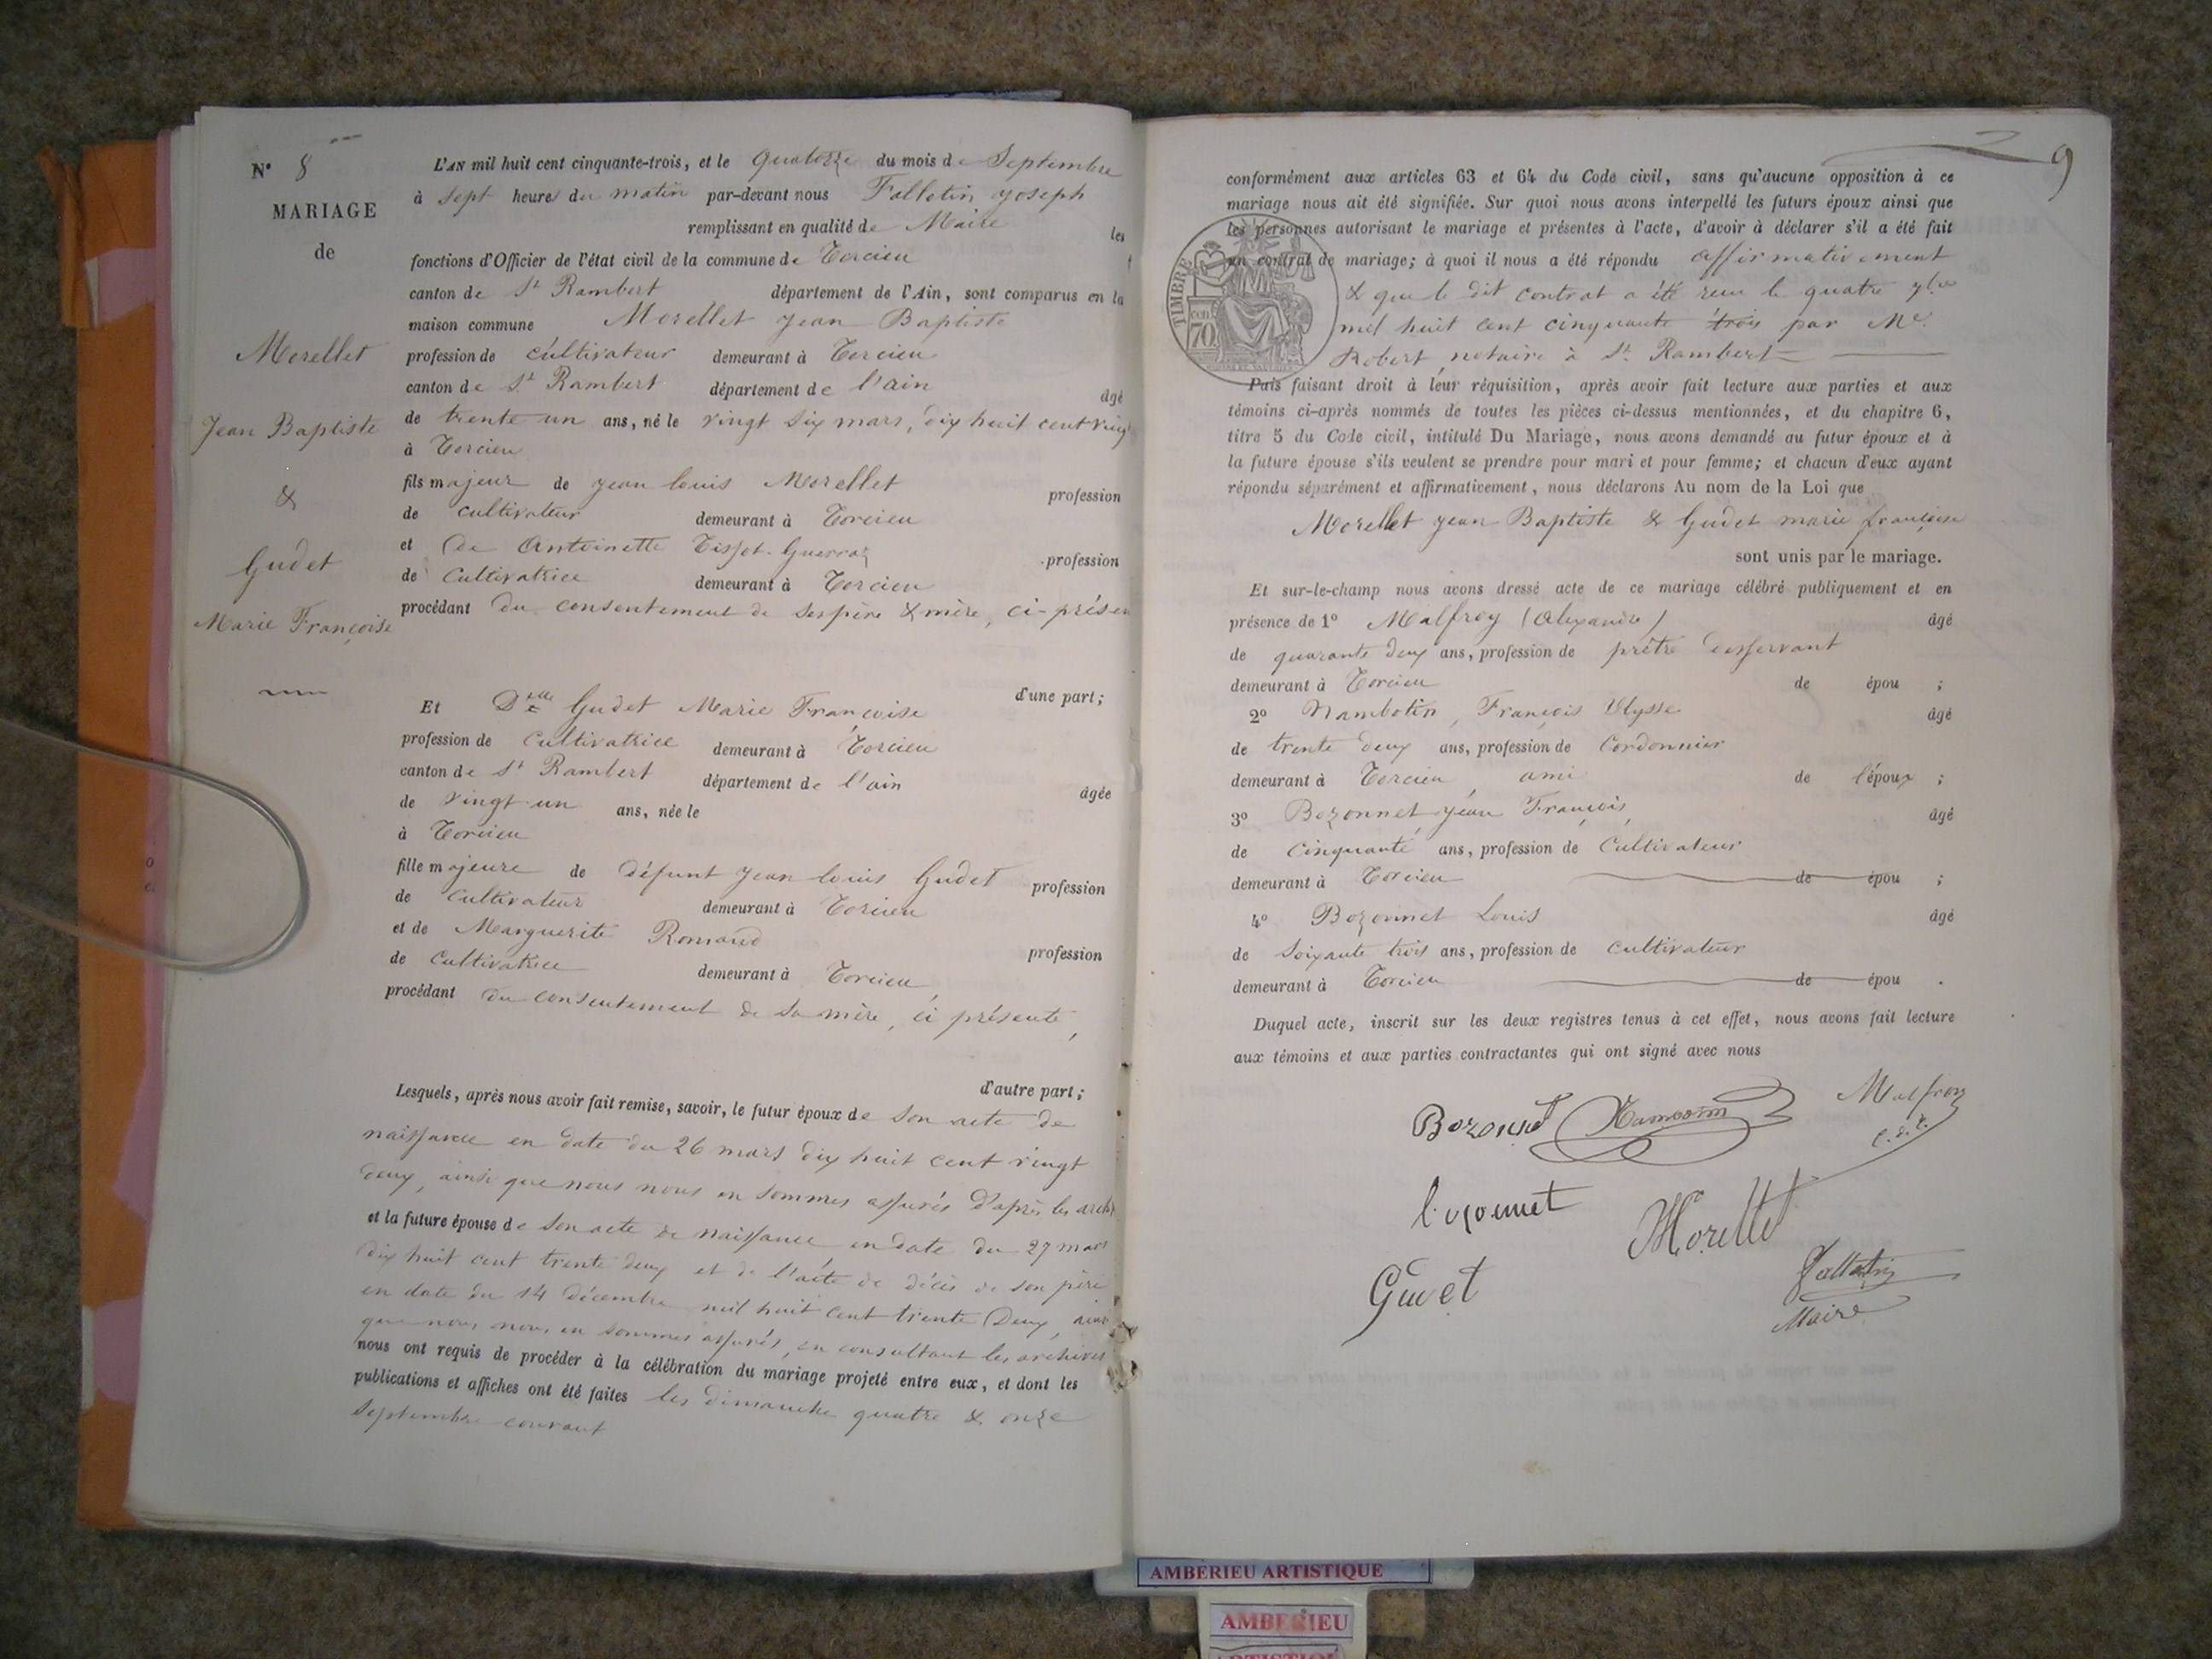 N° 8
MARIAGE
de
Morellet
Jean Baptiste
&
Gudet
Marie Françoise
L'AN mil huit cent cinquante-trois, et le quatorze du mois de Septembre
à sept heures du matin par-devant nous Fallotin joseph
remplissant en qualité de Maire les
fonctions d'Officier de l'état civil de la commune de Torcieu
canton de St Rambert département de l'Ain, sont comparus en la
maison commune Morellet jean Baptiste
profession de cultivateur demeurant à Torcieu
canton de St Rambert département de l'ain âgé
de trente un ans, né le vingt six mars, dix huit cent vingt
à Torcieu
fils majeur de jean louis Morellet profession
de cultivateur demeurant à Torcieu
et de Antoinette Tissot-Guerraz profession
de Cultivatrice demeurant à Torcieu
procédant du consentement de ses père & mère, ci-présen
d'une part;
Et Delle Gudet Marie Françoise
profession de Cultivatrice demeurant à Torcieu
canton de St Rambert département de l'ain âgée
de vingt-un ans, née le
à Torcieu
fille majeure de défunt jean louis Gudet profession
de Cultivateur demeurant à Torcieu
et de Marguerite Romand profession
de Cultivatrice demeurant à Torcieu,
procédant du consentement de sa mère, ci présente,
d'autre part;
Lesquels, après nous avoir fait remise, savoir, le futur époux de son acte de
naissance en date du 26 mars dix huit cent vingt
deux, ainsi que nous nous en sommes assurés d'après les arch
et la future épouse de son acte de naissance en date du 27 mars
dix huit cent trente deux et de l'acte de décès de son père
en date du 14 décembre mil huit cent trente Deux, ainsi
que nous nous en sommes assurés, en consultant les archives
nous ont requis de procéder à la célébration du mariage projeté entre eux, et dont les
publications et affiches ont été faites les dimanche quatre & onze
septembre courant
9
conformément aux articles 63 et 64 du Code civil, sans qu'aucune opposition à ce
mariage nous ait été signifiée. Sur quoi nous avons interpellé les futurs époux ainsi que
les personnes autorisant le mariage et présentes à l'acte, d'avoir à déclarer s'il a été fait
un contrat de mariage; à quoi il nous a été répondu affirmativement
& que le dit contrat a été reçu le quatre 7bre
mil huit cent cinquante trois par Me
Robert notaire à St Rambert
TIMBRE
cen
70
Puis faisant droit à leur réquisition, après avoir fait lecture aux parties et aux
témoins ci-après nommés de toutes les pièces ci-dessus mentionnées, et du chapitre 6,
titre 5 du Code civil, intitulé Du Mariage, nous avons demandé au futur époux et à
la future épouse s'ils veulent se prendre pour mari et pour femme; et chacun d'eux ayant
répondu séparément et affirmativement, nous déclarons Au nom de la Loi que
Morellet jean Baptiste & Gudet marie françoise
sont unis par le mariage.
Et sur-le-champ nous avons dressé acte de ce mariage célébré publiquement et en
présence de 1° Malfroy (Alexandre) âgé
de quarante deux ans, profession de prêtre desservant
demeurant à Torcieu de épou ;
2° Nambotin, François Ulysse âgé
de trente deux ans, profession de Cordonnier
demeurant à Torcieu ami de l'époux ;
3° Bozonnet, jean François, âgé
de Cinquante ans, profession de Cultivateur
demeurant à Torcieu de épou ;
4° Bozonnet Louis âgé
de Soixante trois ans, profession de cultivateur
demeurant à Torcieu de épou .
Duquel acte, inscrit sur les deux registres tenus à cet effet, nous avons fait lecture
aux témoins et aux parties contractantes qui ont signé avec nous
Bozonnet Malfroy
Morellet
Gudet Fallotin
Maire
AMBERIEU ARTISTIQUE
AMBERIEU
ARTISTIQUE